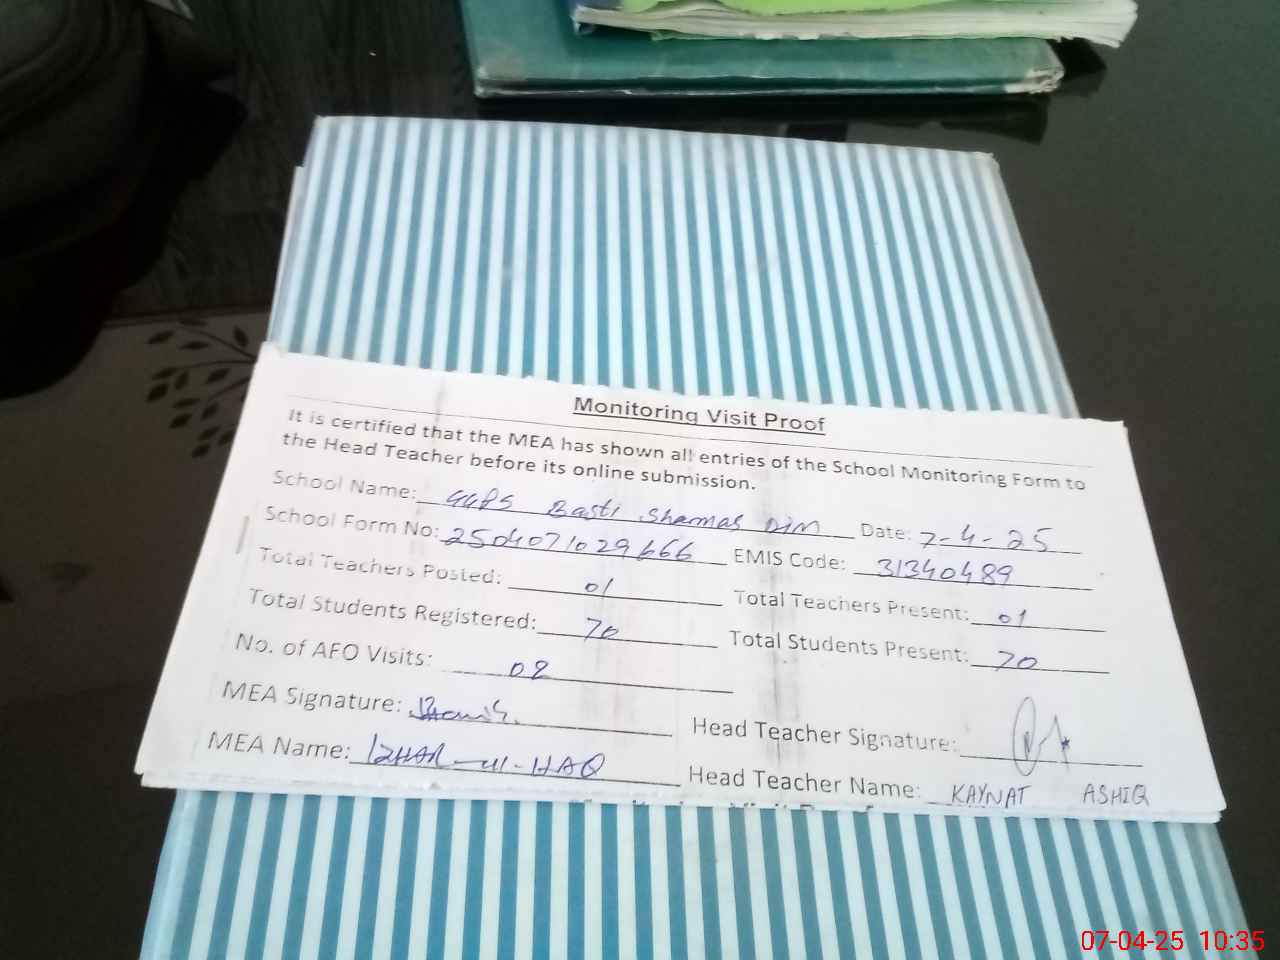 Monitoring Visit Proof
It is certified that the MEA has shown all entries of the School Monitoring Form to
the Head Teacher before its online submission.
School Name: GGPS Basti Shamas Din Date: 7-4-25
School Form No: 2504071029666 EMIS Code: 31340489
Total Teachers Posted: 01 Total Teachers Present: 01
Total Students Registered: 70 Total Students Present: 70
No. of AFO Visits: 02
MEA Signature: Head Teacher Signature:
MEA Name: IZHAR-UL-HAQ Head Teacher Name: KAYNAT ASHIQ
07-04-25 10:35